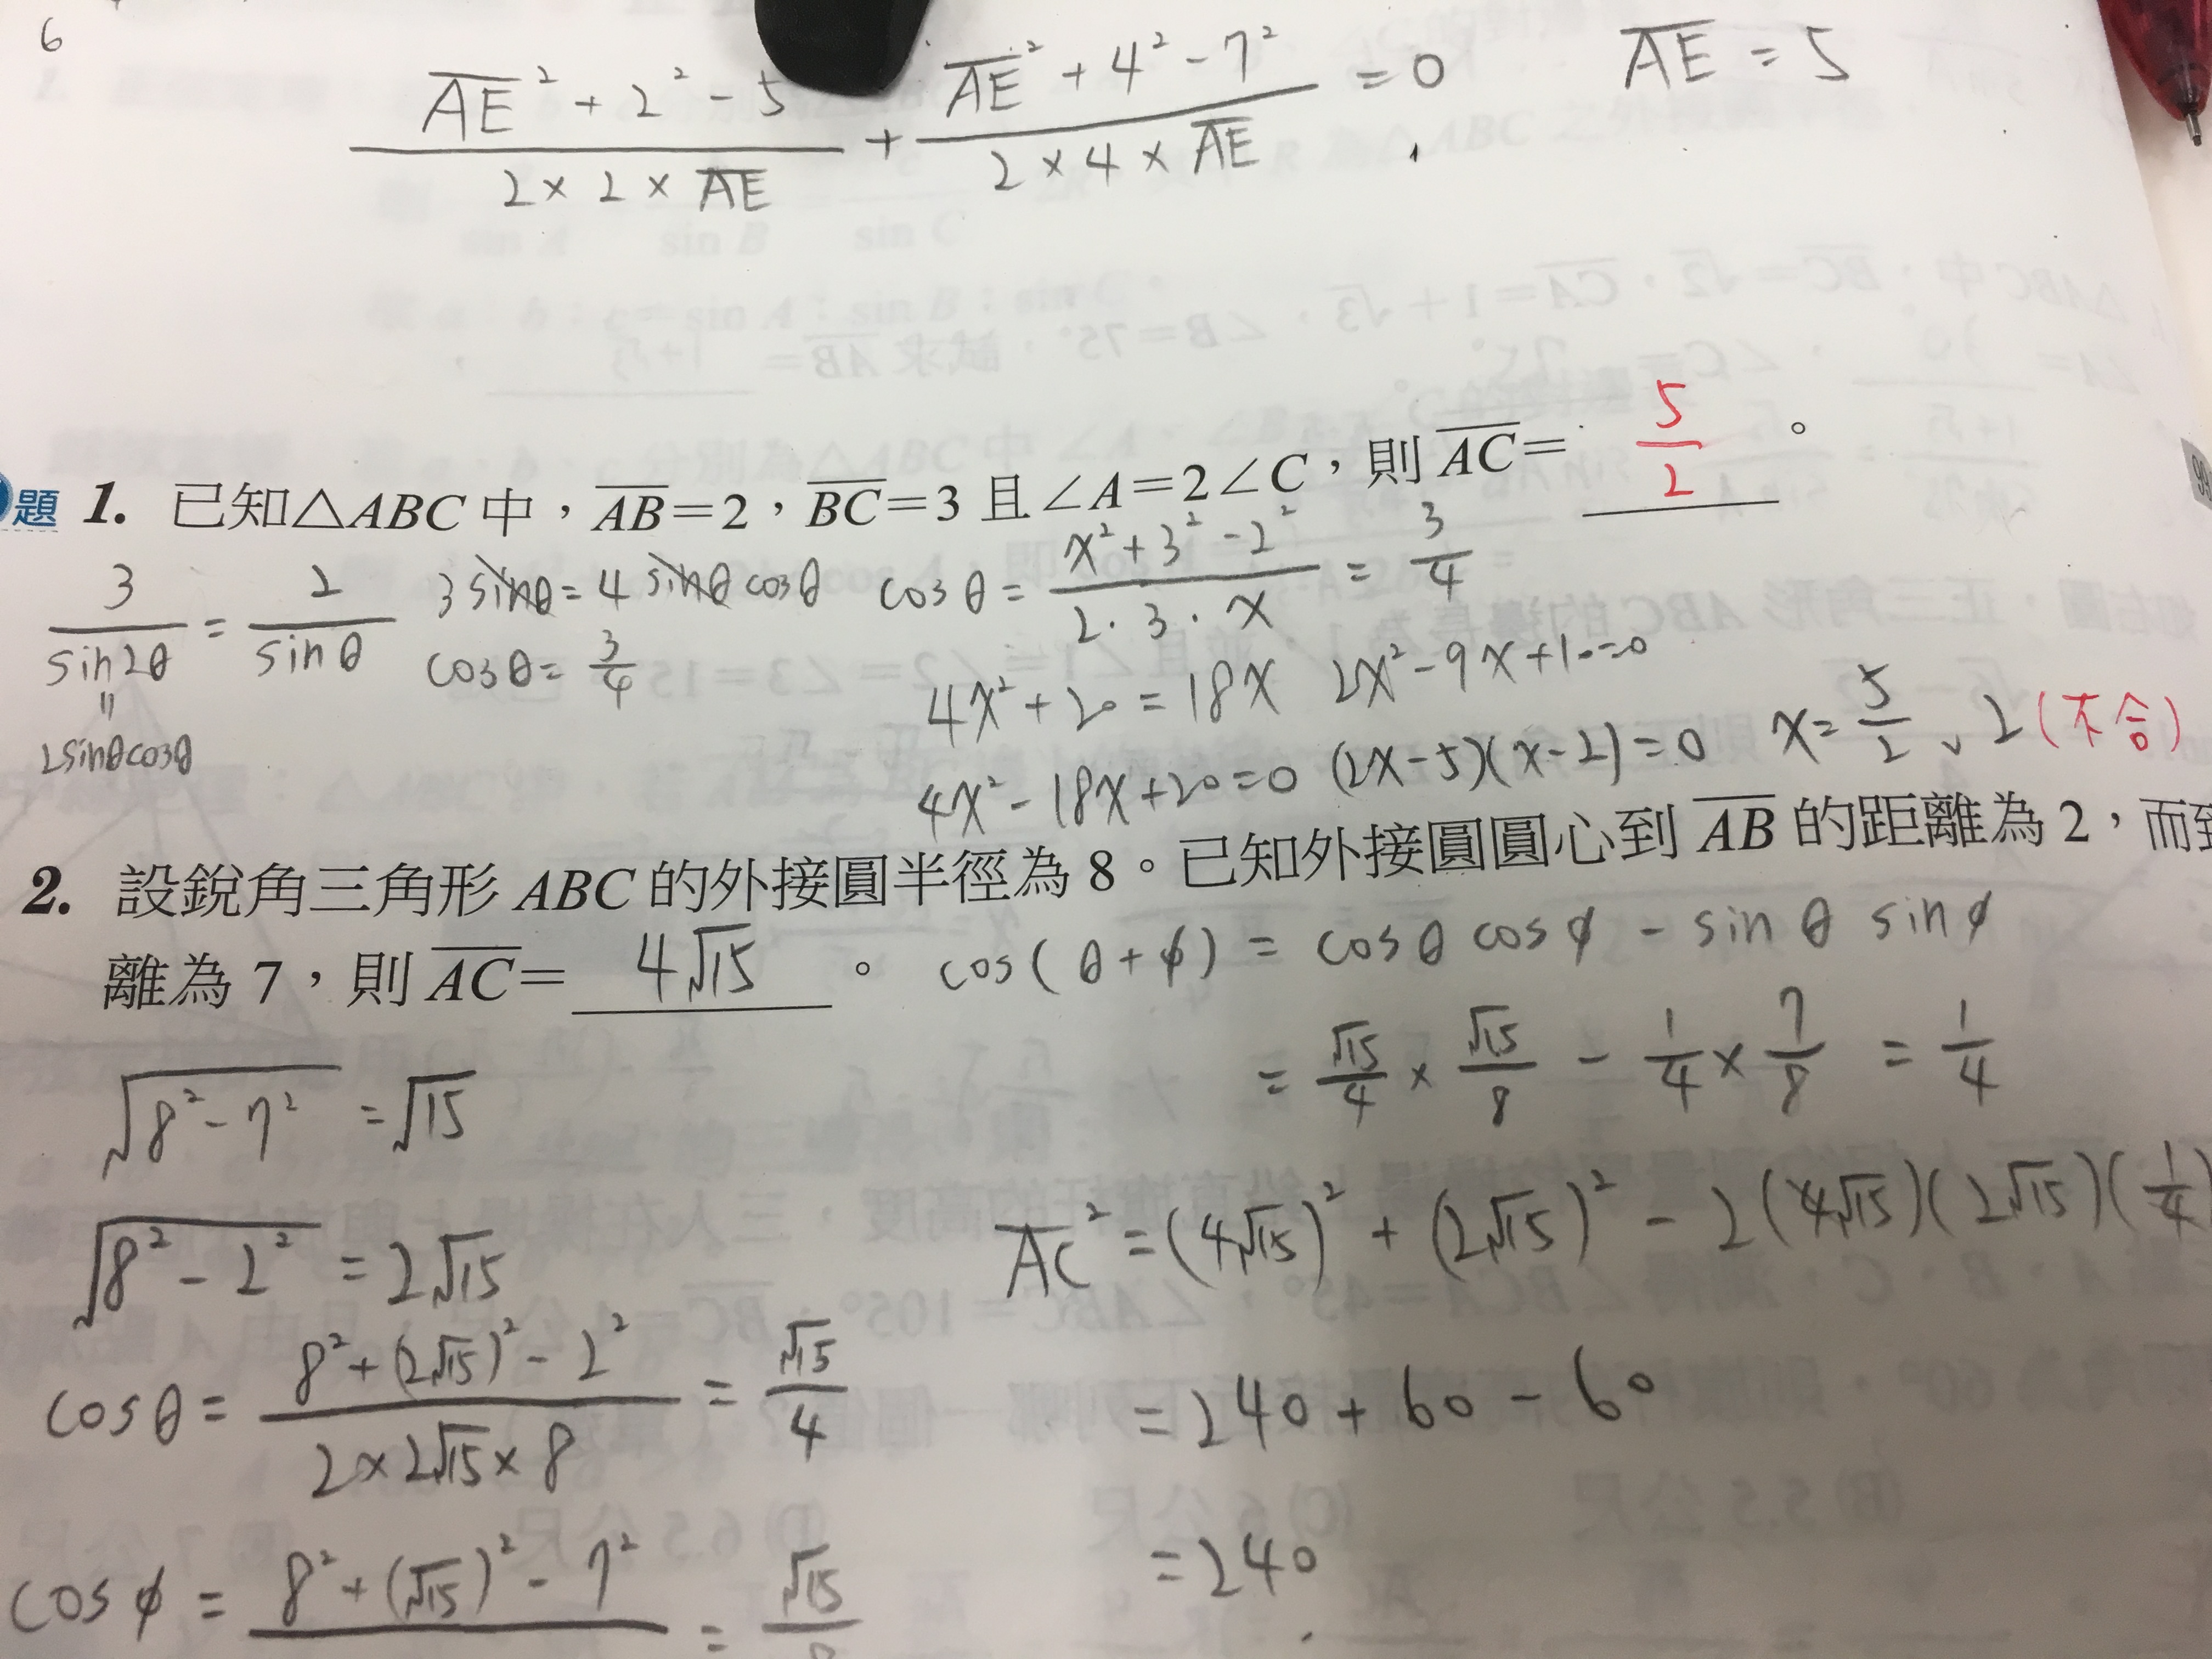 6
\overline{AE}² + 2² - 5 / 2 × 2 × \overline{AE} + \overline{AE}² + 4² - 7² / 2 × 4 × \overline{AE} = 0 \overline{AE} = 5
題 1. 已知△ABC 中，\overline{AB}=2，\overline{BC}=3 且∠A=2∠C，則 \overline{AC}= 5/2 。
3/sin2θ = 2/sinθ 3sinθ = 4 sinθ cosθ cosθ = x²+3²-2² / 2·3·x = 3/4
" 2sinθcosθ
cosθ = 3/4
4x²+20 = 18x 2x²-9x+10=0
4x²-18x+20=0 (2x-5)(x-2)=0 x=5/2、2(不合)
2. 設銳角三角形 ABC 的外接圓半徑為 8。已知外接圓圓心到 \overline{AB} 的距離為 2，而到
離為 7，則 \overline{AC}= 4√15 。 cos(θ+φ) = cosθ cosφ - sinθ sinφ
= √15/4 × √15/8 - 1/4 × 7/8 = 1/4
√(8²-7²) = √15
√(8²-2²) = 2√15
\overline{AC}² = (4√15)² + (2√15)² - 2(4√15)(2√15)(1/4)
cosθ = 8²+(2√15)²-2² / 2×2√15×8 = √15/4
= 240 + 60 - 60
cosφ = 8²+(√15)²-7² = √15/8
= 240